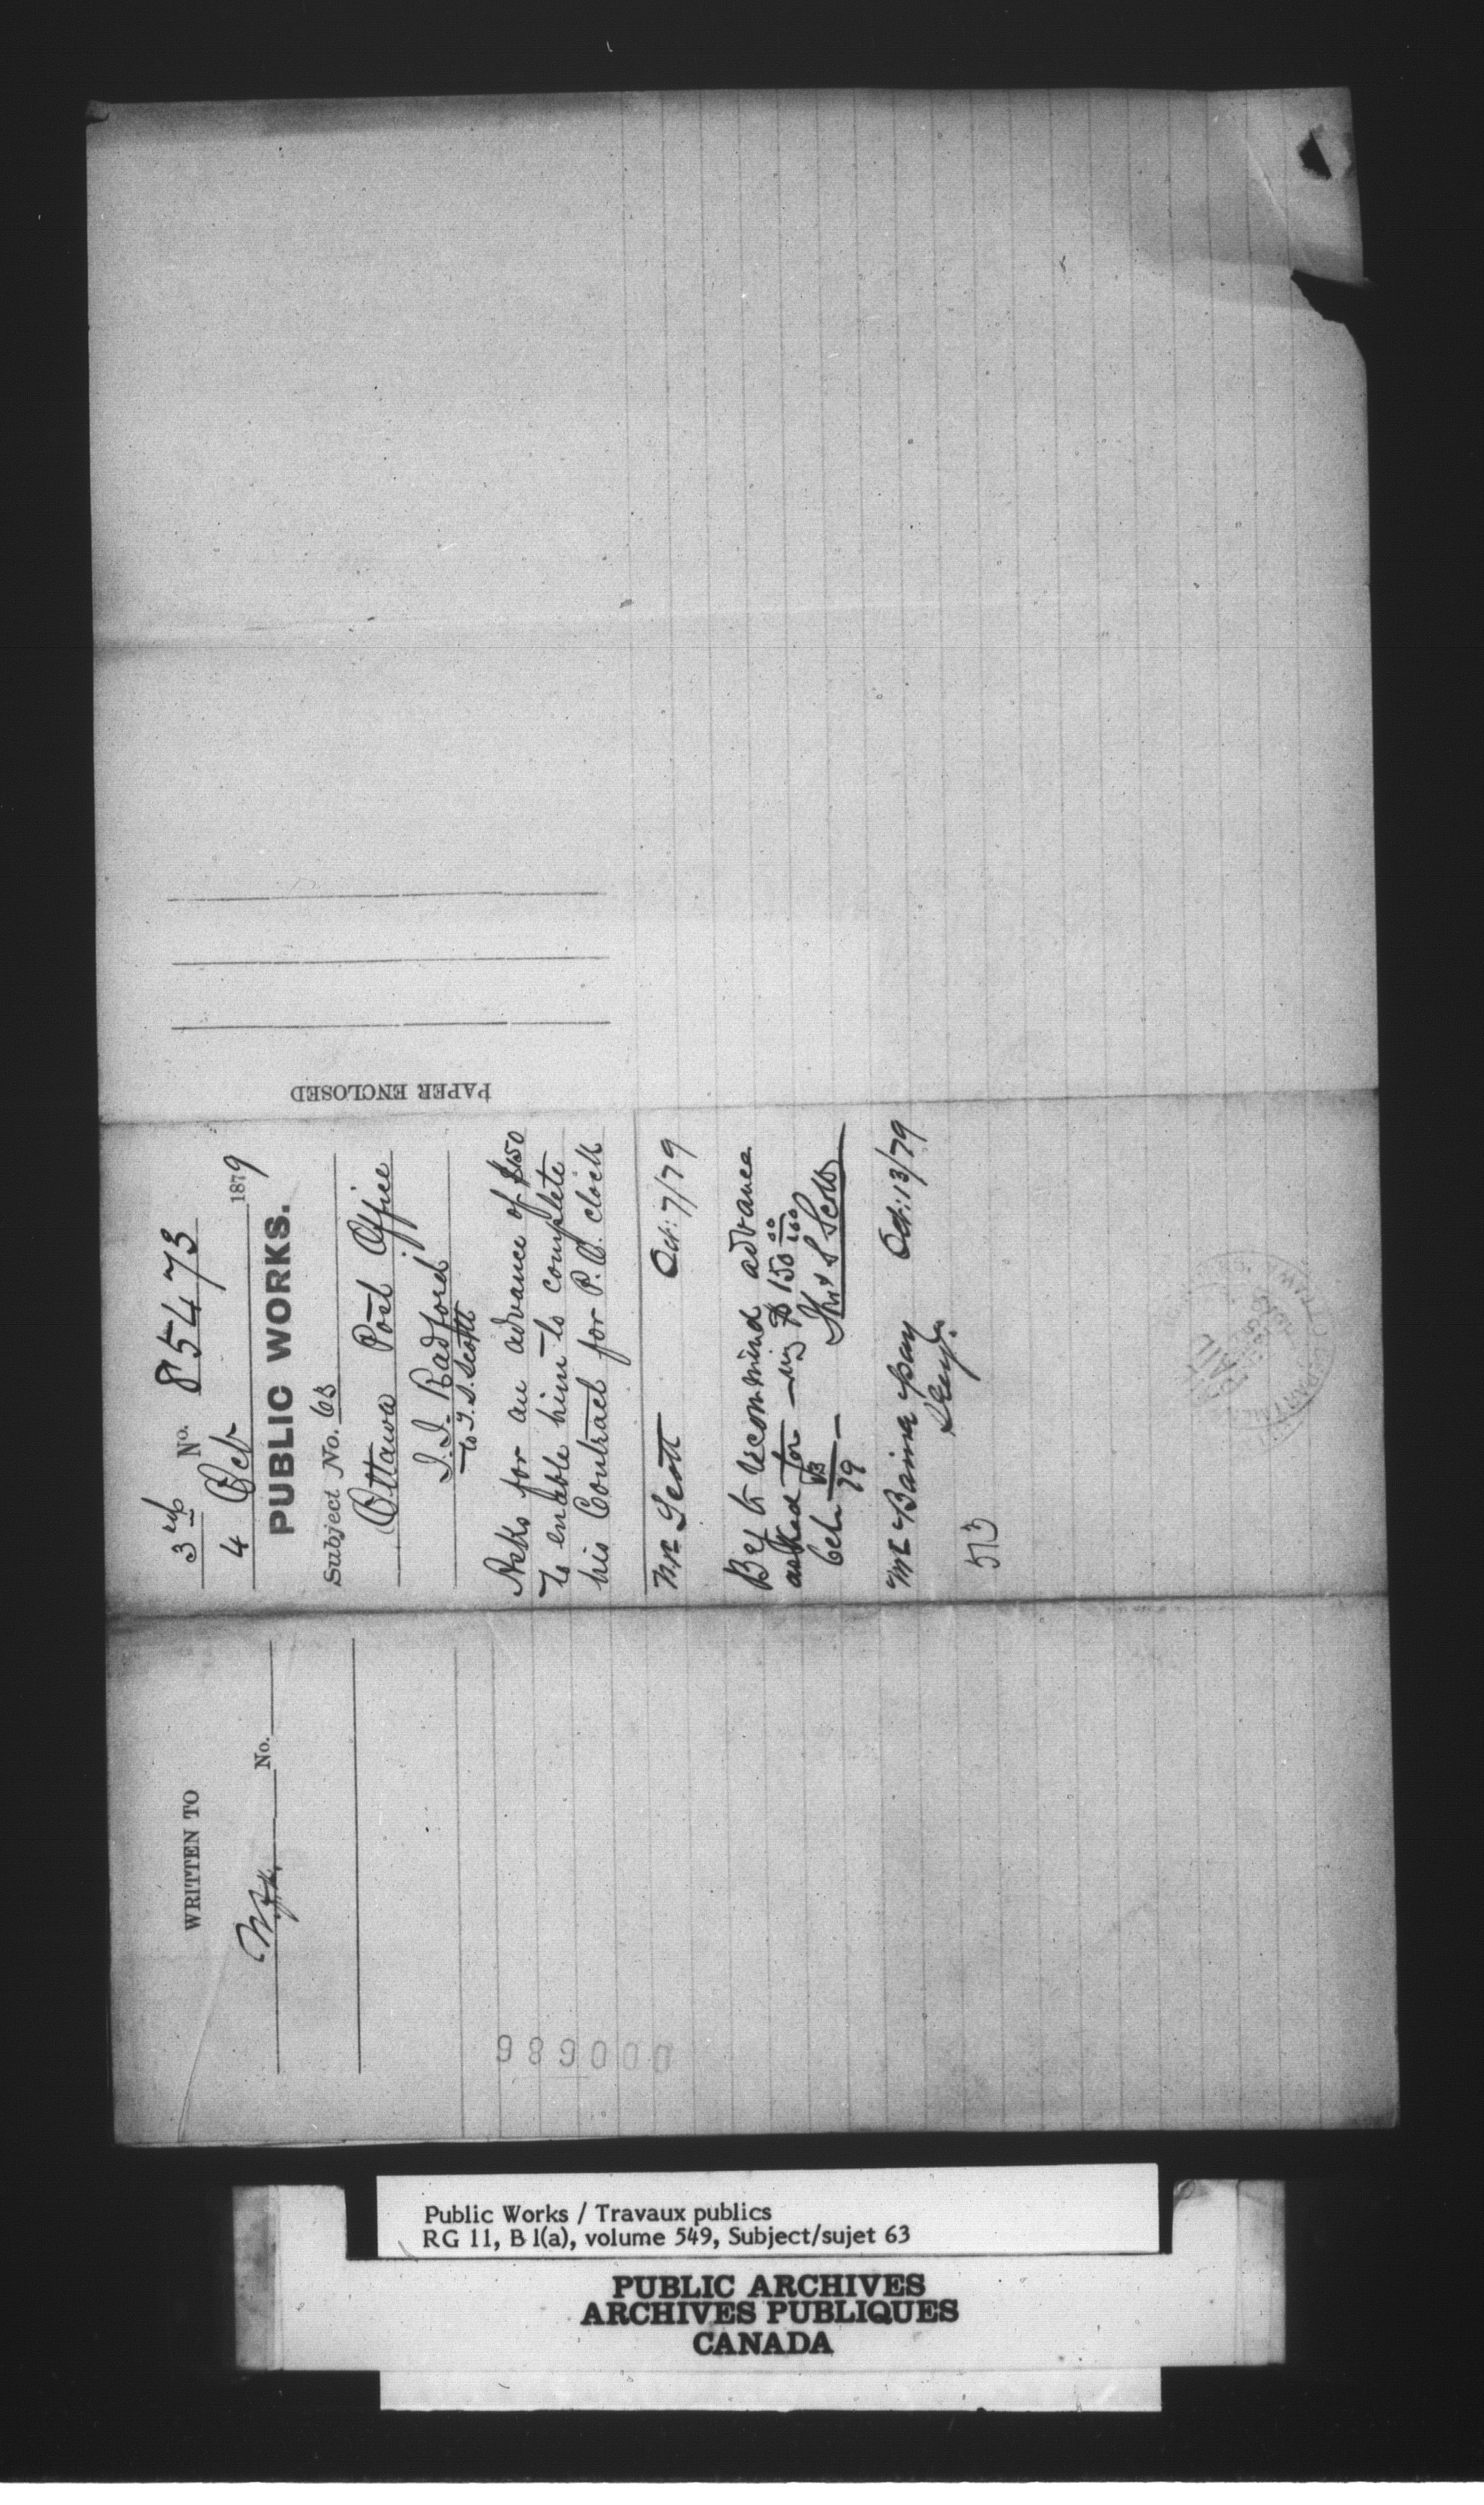 WRITTEN TO
No.
3rd No. 85473
4 Oct 1879
PUBLIC WORKS.
Subject No. 63
Ottawa Post Office
J. J. Radford
to T. S. Scott
Asks for an advance of $150
to enable him to complete
his Contract for P.O. clock
Mr Scott Oct: 7/79
Beg to recommend advance
asked for $150 00/100
Thos S Scott
Oct 13/79
Mr Baine pay Oct: 13/79
513
PAPER ENCLOSED
989000
Public Works / Travaux publics
RG 11, B 1(a), volume 549, Subject/sujet 63
PUBLIC ARCHIVES
ARCHIVES PUBLIQUES
CANADA